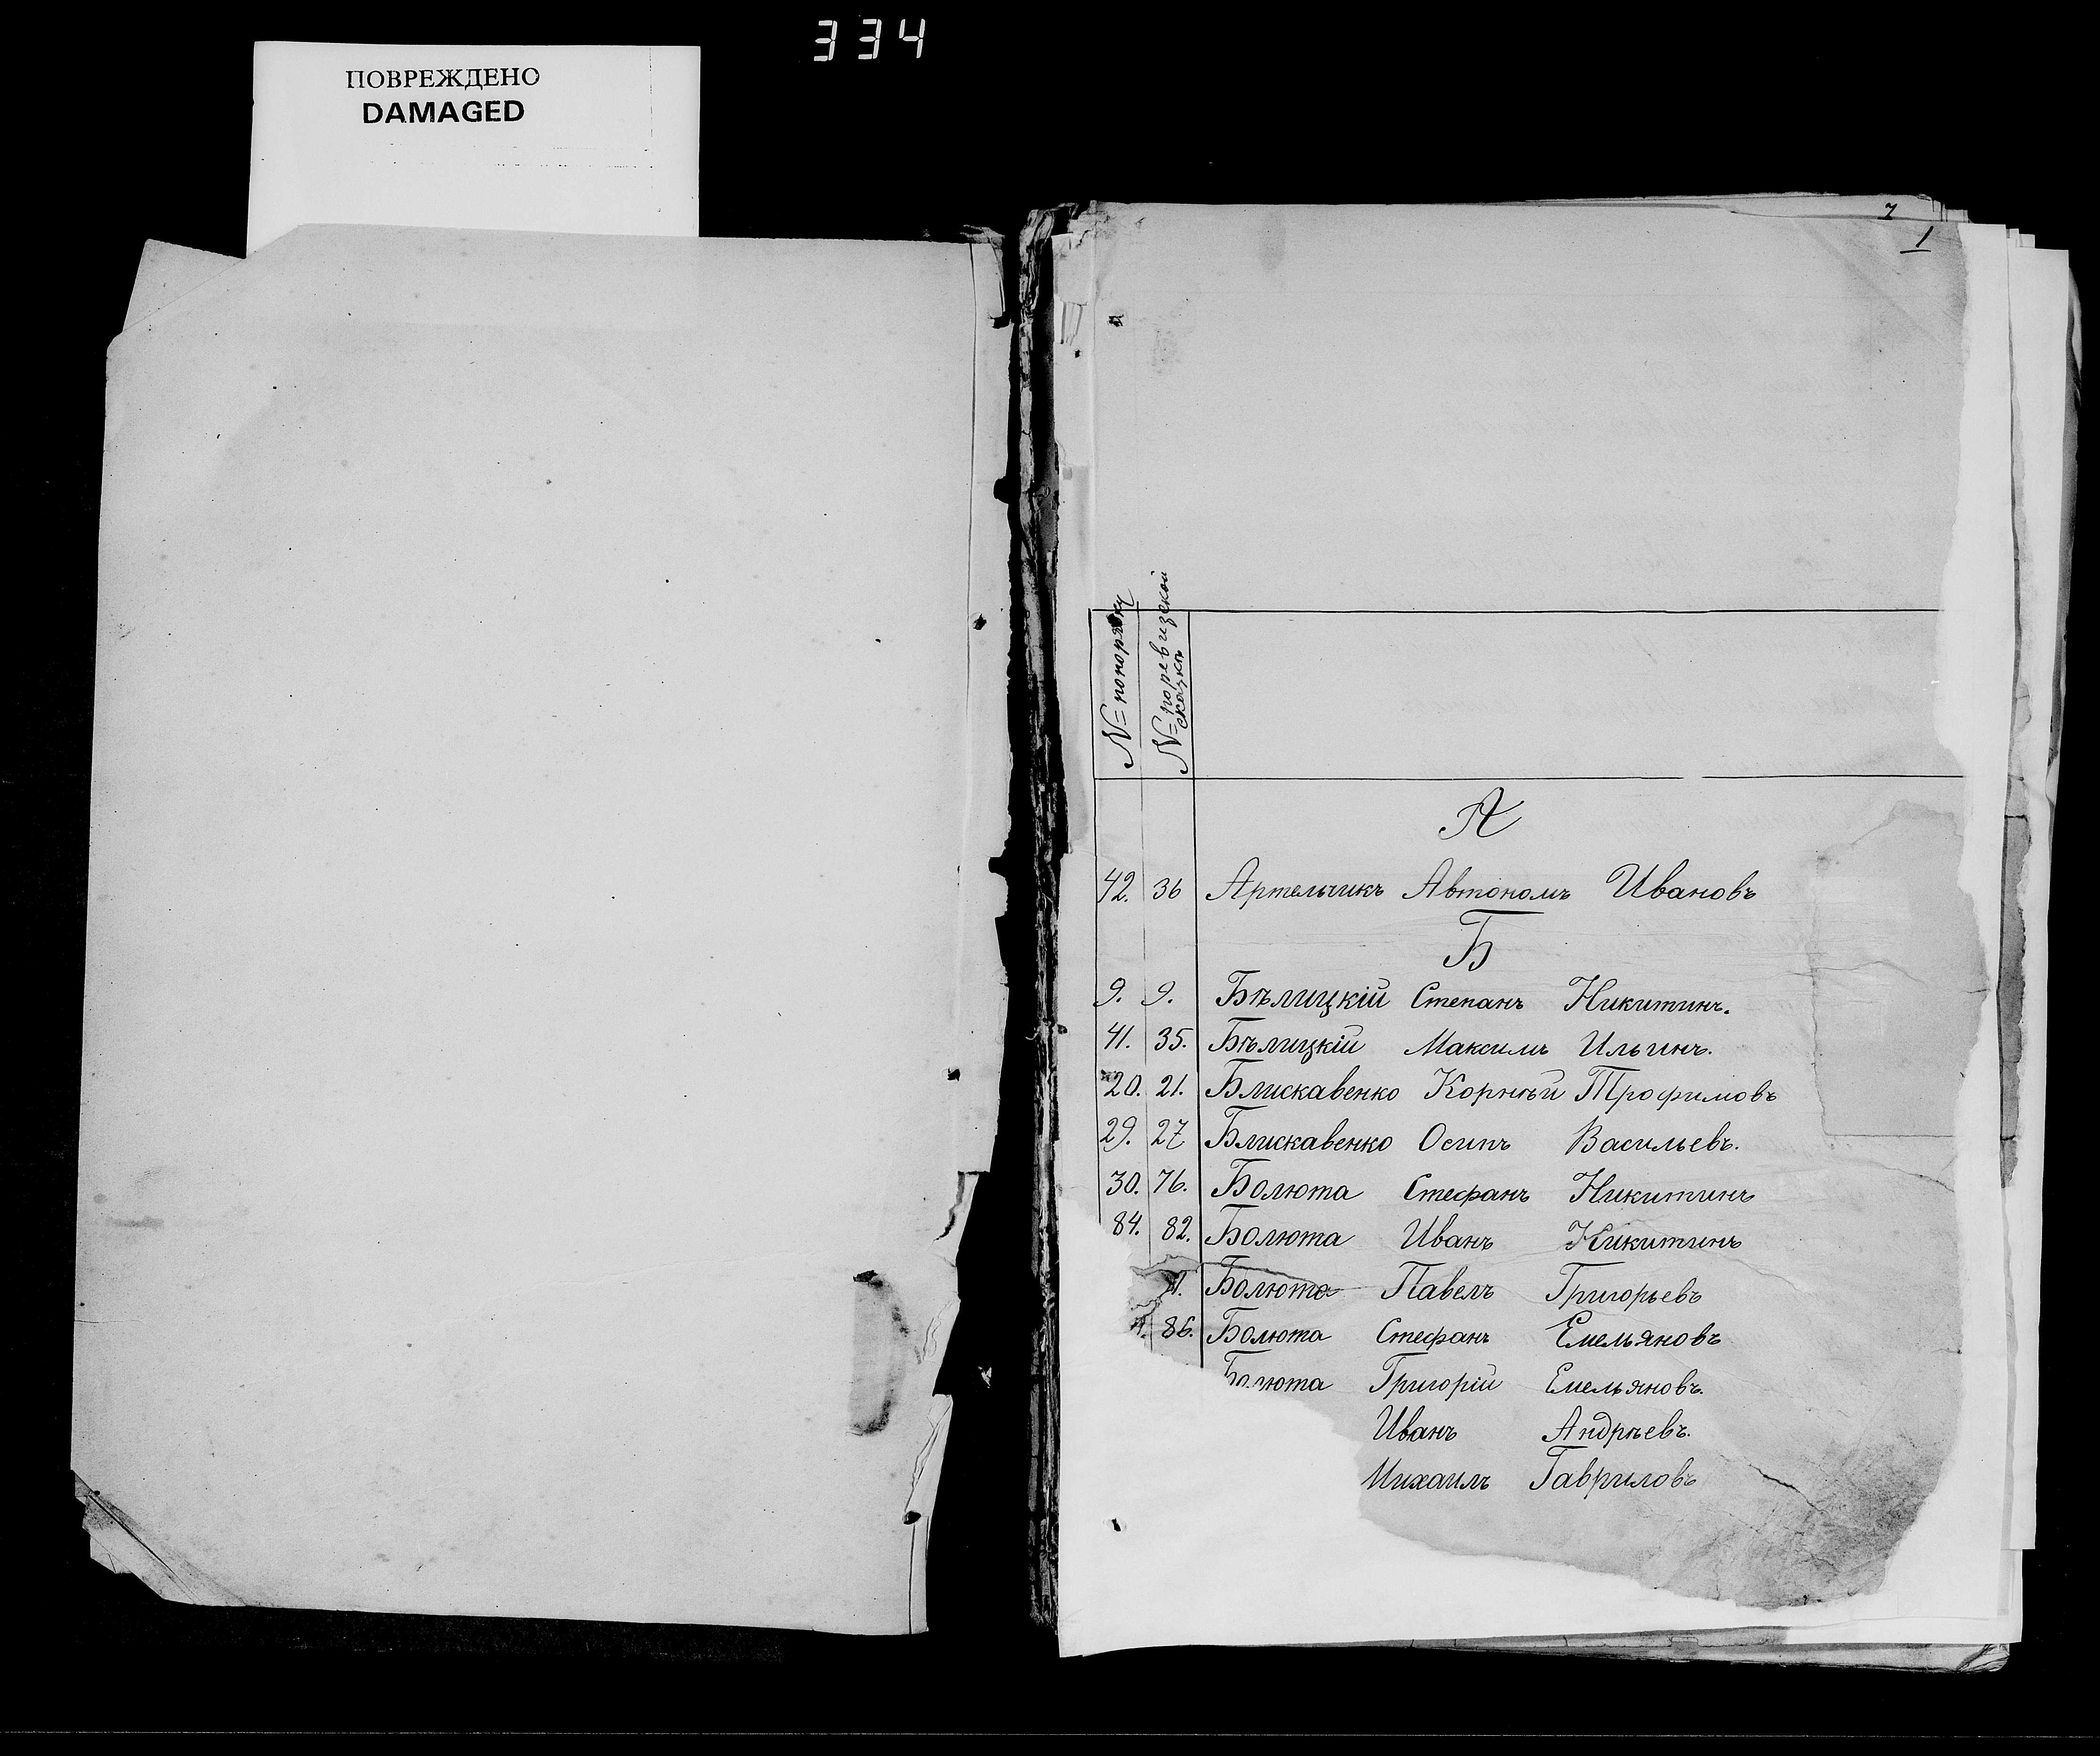 334
ПОВРЕЖДЕНО
DAMAGED
7
1
№ по порядку
№ по ревизской
сказкѣ
А
42. 36 Артельчикъ Автономъ Ивановъ
Б
9. 9. Бѣлицкій Степанъ Никитинъ.
41. 35. Бѣлицкій Максимъ Ильинъ.
20. 21. Блискавенко Корнѣй Трофимовъ
29. 27 Блискавенко Осипъ Васильевъ.
30. 76. Болюта Стефанъ Никитинъ
84. 82. Болюта Иванъ Никитинъ
Болюта Павелъ Григорьевъ
86. Болюта Стефанъ Емельяновъ
Болюта Григорій Емельяновъ.
Иванъ Андрѣевъ.
Михаилъ Гавриловъ